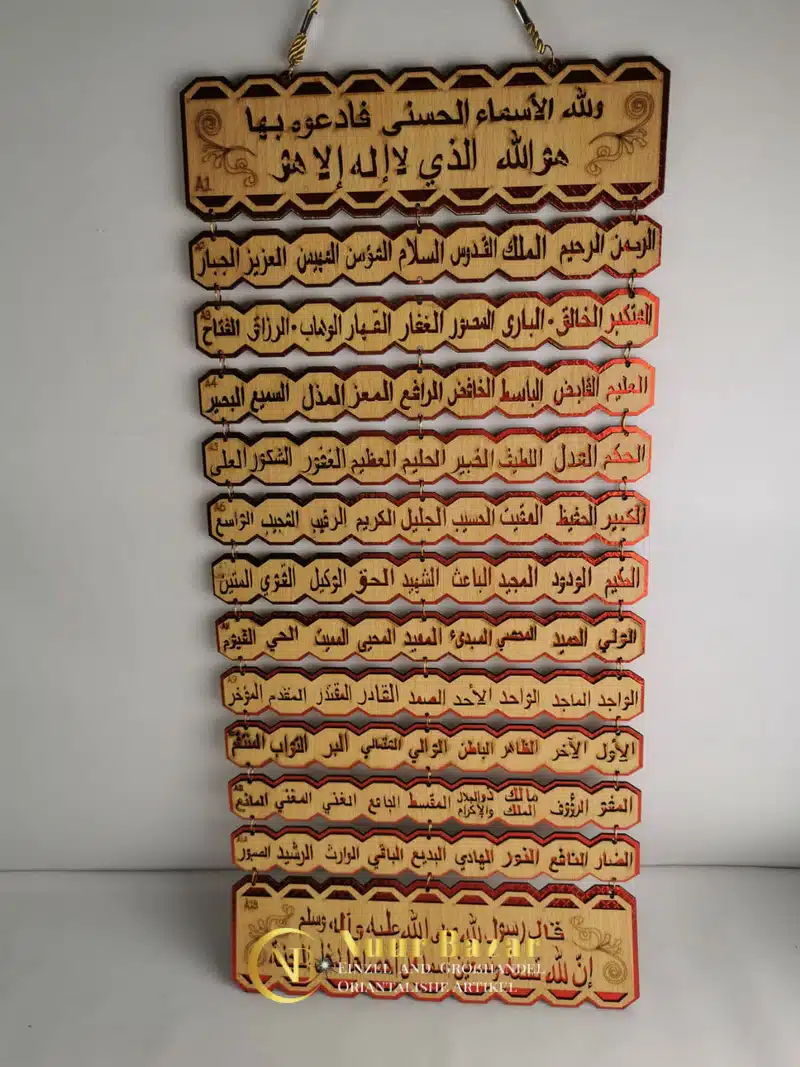 ولله الأسماء الحسنى فادعوه بها
هو الله الذي لا إله إلا هو
A1
الرحمن الرحيم الملك القدوس السلام المؤمن المهيمن العزيز الجبار
A3
المتكبر الخالق البارى المصور الغفار القهار الوهاب الرزاق الفتاح
A4
العليم القابض الباسط الخافض الرافع المعز المذل السميع البصير
A5
الحكم العدل اللطيف الخبير الحليم العظيم الغفور الشكور العلى
A6
الكبير الحفيظ المقيت الحسيب الجليل الكريم الرقيب المجيب الواسع
الحكيم الودود المجيد الباعث الشهيد الحق الوكيل القوي المتين
الولي الحميد المحصي المبدىء المعيد المحيي المميت الحي القيوم
الواجد الماجد الواحد الأحد الصمد القادر المقتدر المقدم المؤخر
الأول الآخر الظاهر الباطن الوالي المتعالي البر التواب المنتقم
العفو الرؤوف مالك الملك ذوالجلال والإكرام المقسط الجامع الغني المغني المانع
الضار النافع النور الهادي البديع الباقي الوارث الرشيد الصبور
قال رسول الله صلى الله عليه وآله وسلم
إن لله
Nuur Bazar
Einzel and Großhandel
Oriantalishe Artikel